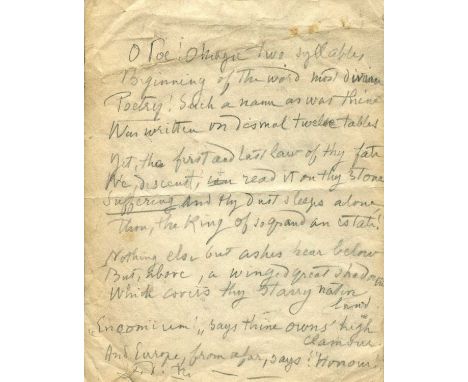 O Poe! O magic two syllables
Beginning of the word most divine
Poetry! Such a name as was thine
Was written on dismal twelve tables
Yet, the first and last law of thy fate
We, discent, read it on thy stone
Suffering and thy dust sleeps alone
thou, the King of so grand an estate!
Nothing else but ashes hear below
But, above, a winged great shadow
Which covers thy starry nation
"Encomium", says thine owns' high
clamour
And Europe, from afar, says: "Honour!"